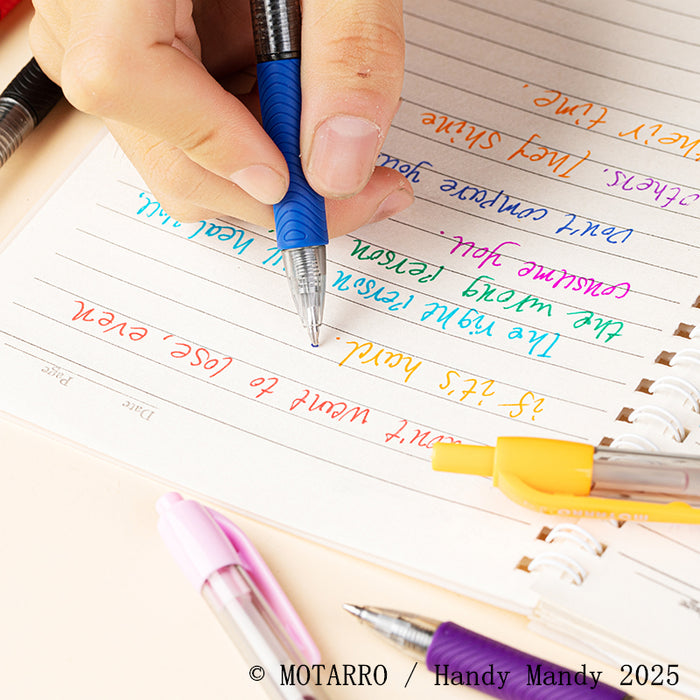 Date
Page
want to lose, even
if it's hard.
The right Person heal you,
the wrong Person
consume you.
Don't compare you
others. They shine
their time.
© MOTARRO / Handy Mandy 2025